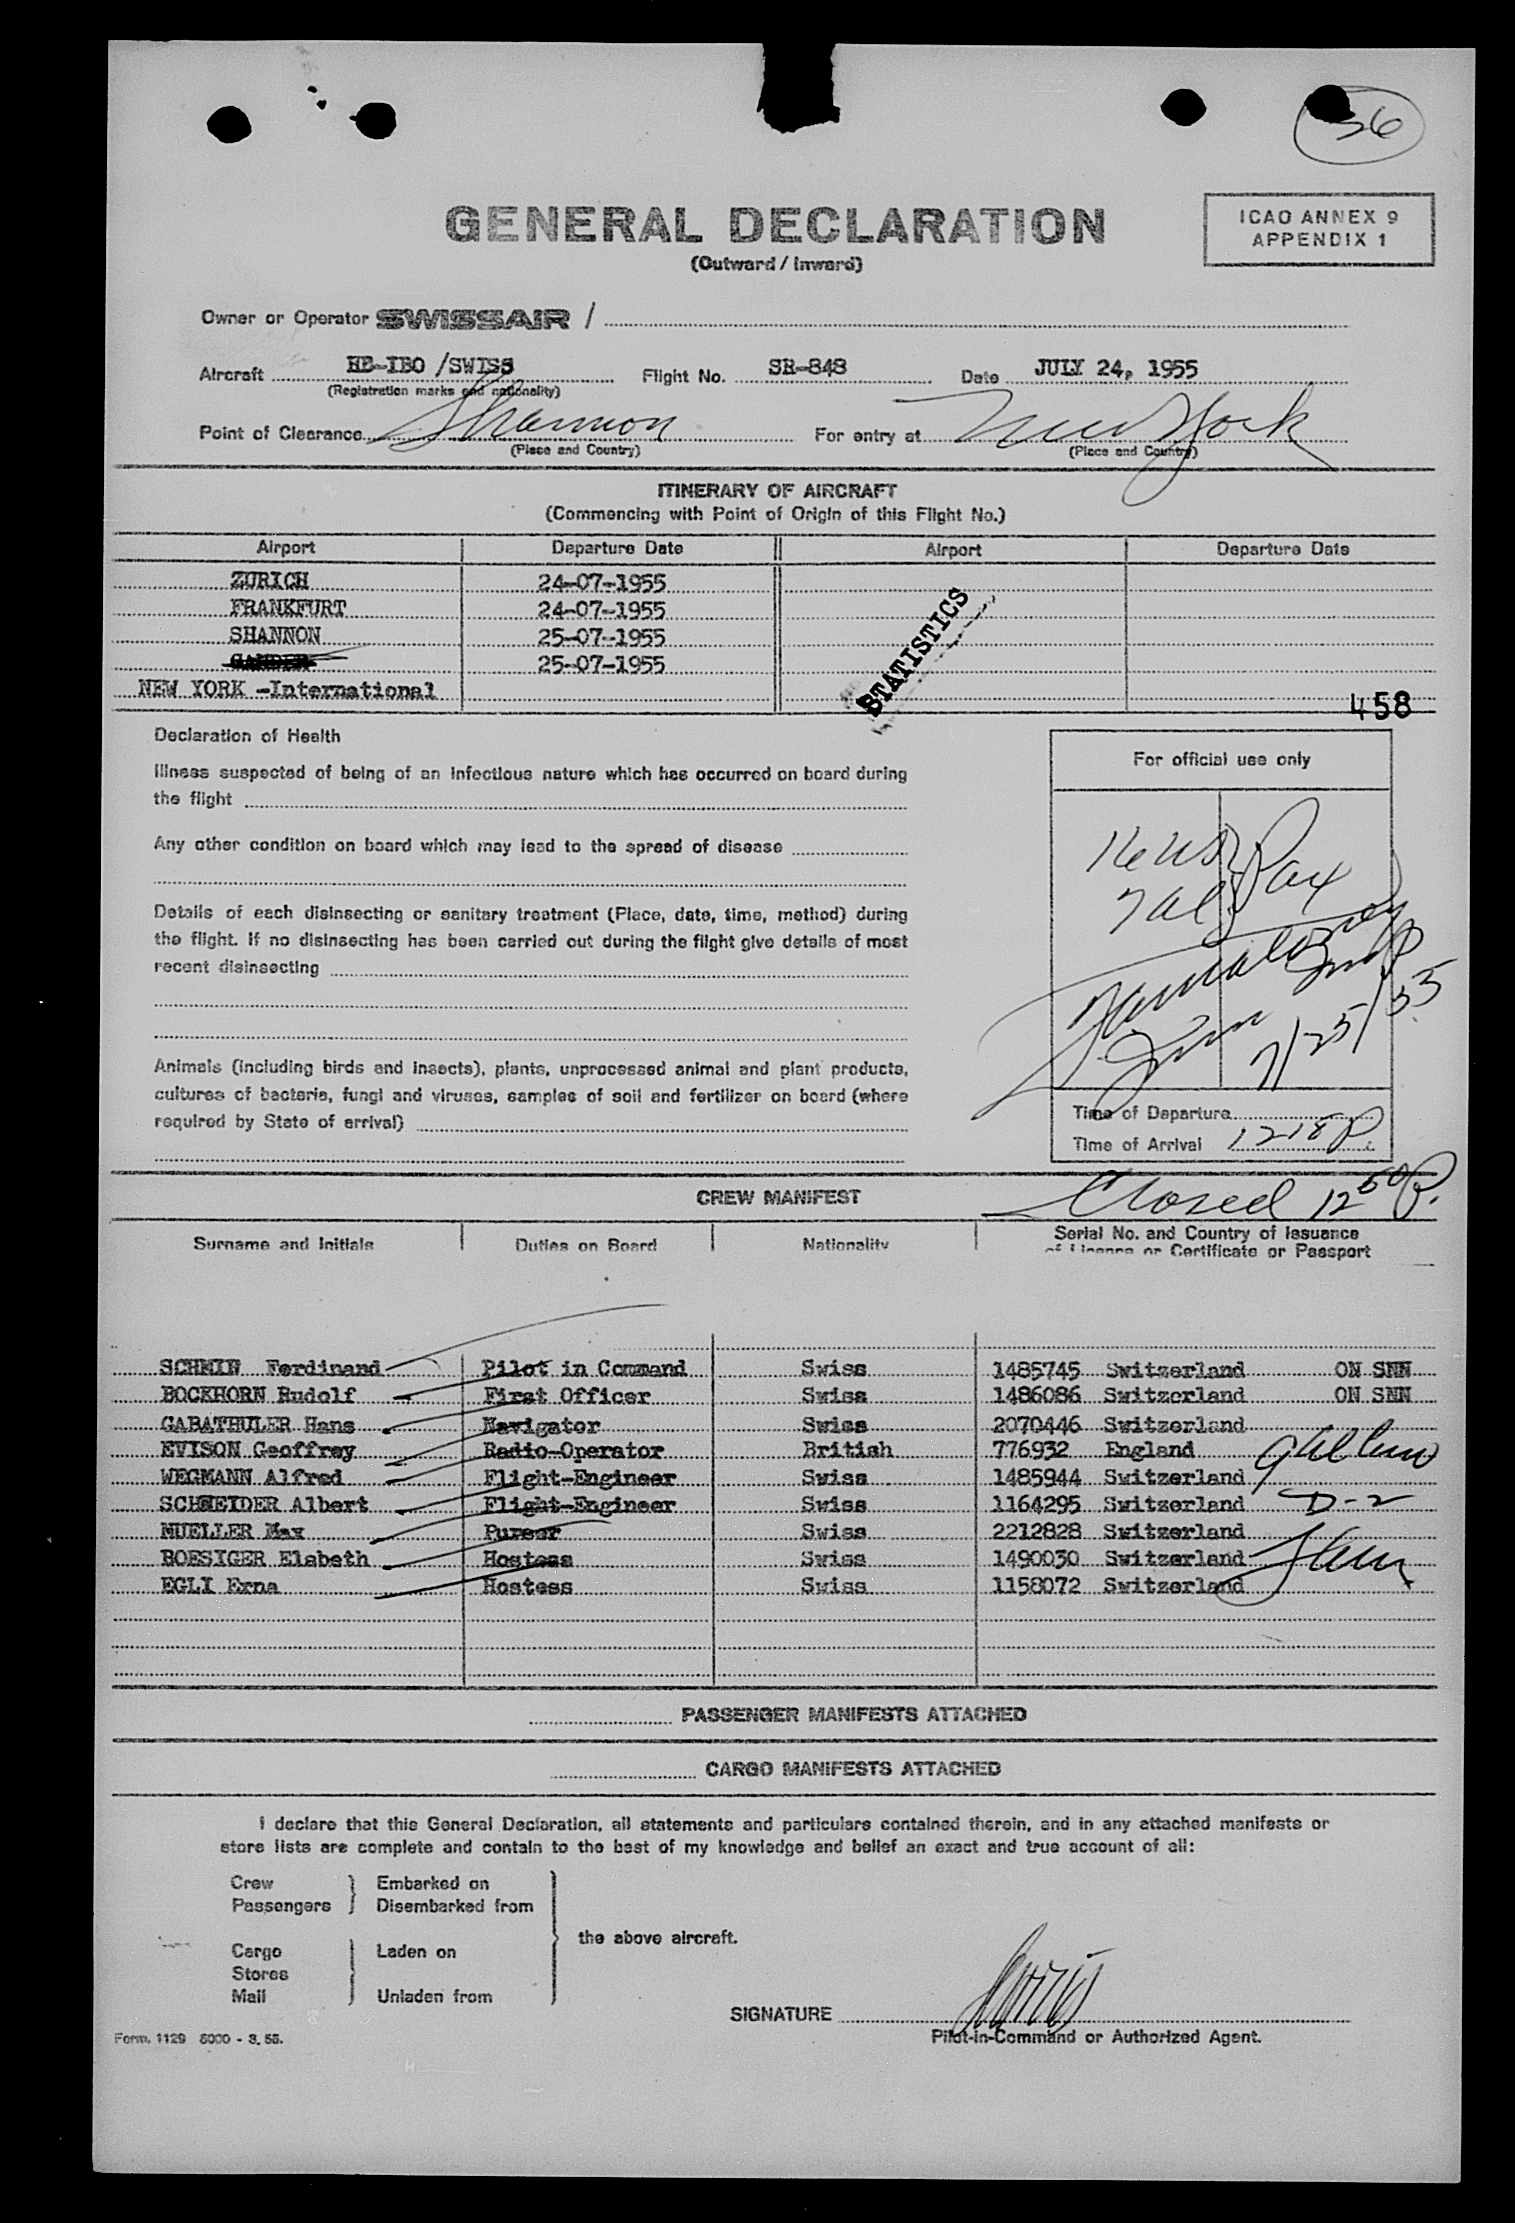 36
GENERAL DECLARATION
(Outward / Inward)
ICAO ANNEX 9
APPENDIX 1
Owner or Operator SWISSAIR /
Aircraft HB-IBO /SWISS Flight No. SR-848 Date JULY 24, 1955
(Registration marks and nationality)
Point of Clearance Shannon For entry at New York
(Place and Country) (Place and Country)
ITINERARY OF AIRCRAFT
(Commencing with Point of Origin of this Flight No.)
Airport Departure Date Airport Departure Date
ZURICH 24-07-1955
FRANKFURT 24-07-1955
SHANNON 25-07-1955
GANDER 25-07-1955
NEW YORK -International
STATISTICS
458
Declaration of Health
Illness suspected of being of an infectious nature which has occurred on board during
the flight
Any other condition on board which may lead to the spread of disease
Details of each disinsecting or sanitary treatment (Place, date, time, method) during
the flight. If no disinsecting has been carried out during the flight give details of most
recent disinsecting
Animals (including birds and insects), plants, unprocessed animal and plant products,
cultures of bacteria, fungi and viruses, samples of soil and fertilizer on board (where
required by State of arrival)
For official use only
Pax
7/25/55
Time of Departure
Time of Arrival 1218P
Closed 12 50 P.
CREW MANIFEST
Surname and Initials Duties on Board Nationality Serial No. and Country of Issuance
of Licence or Certificate or Passport
SCHMIN Ferdinand Pilot in Command Swiss 1485745 Switzerland ON SNN
BOCKHORN Rudolf First Officer Swiss 1486086 Switzerland ON SNN
GABATHULER Hans Navigator Swiss 2070446 Switzerland
EVISON Geoffrey Radio-Operator British 776932 England
WEGMANN Alfred Flight-Engineer Swiss 1485944 Switzerland
SCHNEIDER Albert Flight-Engineer Swiss 1164295 Switzerland D-2
MUELLER Max Purser Swiss 2212828 Switzerland
BOESIGER Elsbeth Hostess Swiss 1490030 Switzerland
EGLI Erna Hostess Swiss 1158072 Switzerland
PASSENGER MANIFESTS ATTACHED
CARGO MANIFESTS ATTACHED
I declare that this General Declaration, all statements and particulars contained therein, and in any attached manifests or
store lists are complete and contain to the best of my knowledge and belief an exact and true account of all:
Crew Embarked on
Passengers Disembarked from
the above aircraft.
Cargo Laden on
Stores
Mail Unladen from
SIGNATURE
Pilot-in-Command or Authorized Agent.
Form. 1129 5000 - 3. 55.